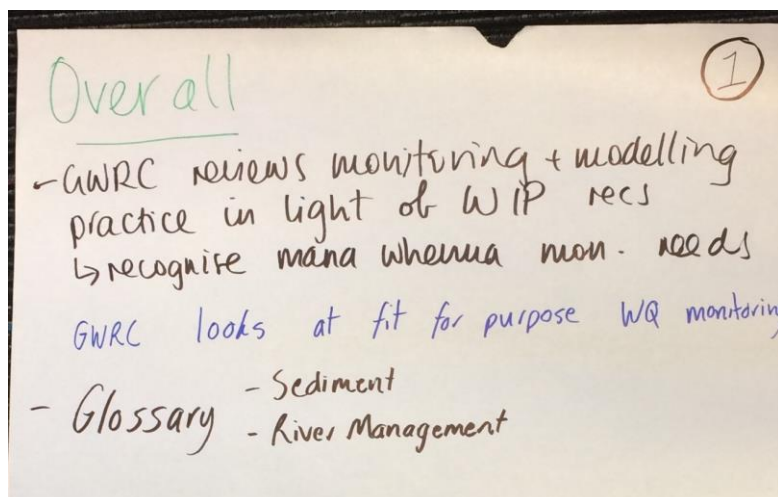 Overall
1
- GWRC reviews monitoring + modelling
practice in light of WIP recs
↳ recognise mana whenua mon. needs
GWRC looks at fit for purpose WQ monitorin
- Glossary - Sediment
- River Management